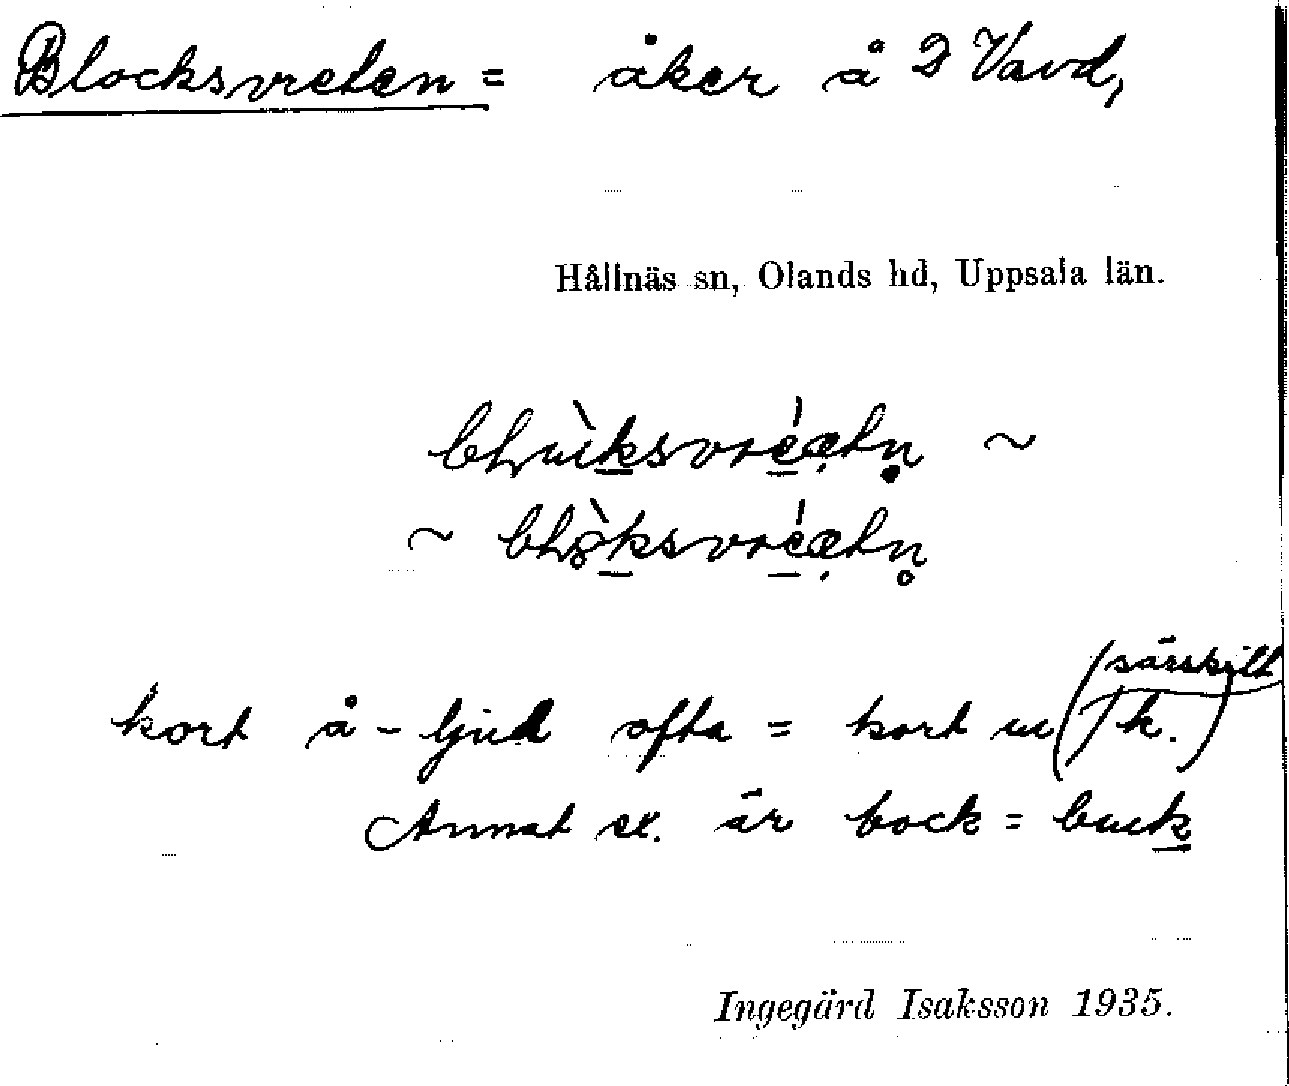 Blocksvreten = åker å 2 Vavd,
Hållnäs sn, Olands hd, Uppsala län.
kort å-ljud ofta = kort u (särskilt / k.)
Annat ex. är bock = buck
Ingegärd Isaksson 1935.